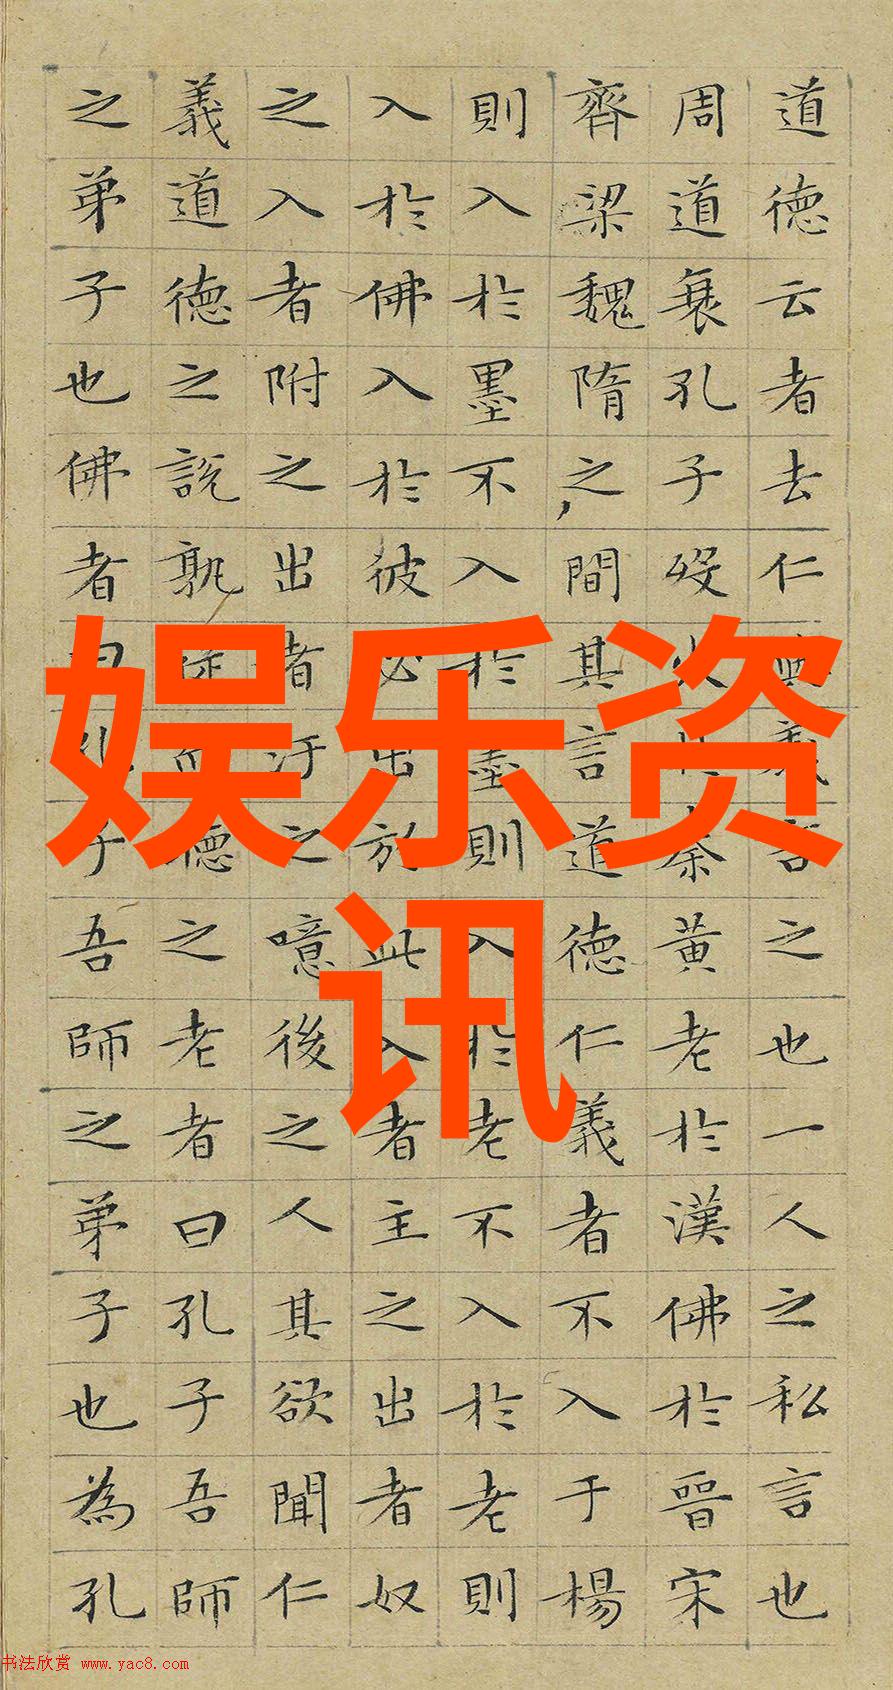 道德云者去仁與義言之也一人之私言也
周道衰孔子歿火于秦黃老於漢佛於晉宋
齊梁魏隋之間其言道德仁義者不入于楊
則入於墨不入於墨則入於老不入於老則
入於佛入於彼必出於此入者主之出者奴
之入者附之出者汙之噫後之人其欲聞仁
義道德之說孰從而聽之老者曰孔子吾師
之弟子也佛者曰孔子吾師之弟子也為孔
娱乐资
讯
书法欣赏 www.yac8.com